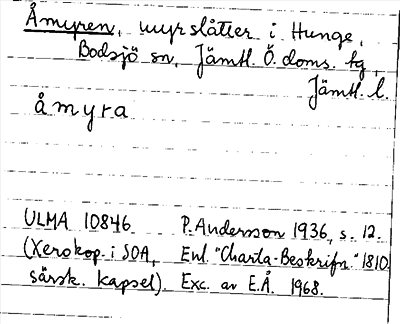 Åmyren, myrslåtter i Hunge,
Bodsjö sn, Jämtl. Ö. doms. tg,
Jämtl. l.
åmyra
ULMA 10846 P. Andersson 1936, s. 12.
(Xerokop. i SOA, Enl. "Charta-Beskrifn" 1810
särsk. kapsel). Exc. av E.Å. 1968.